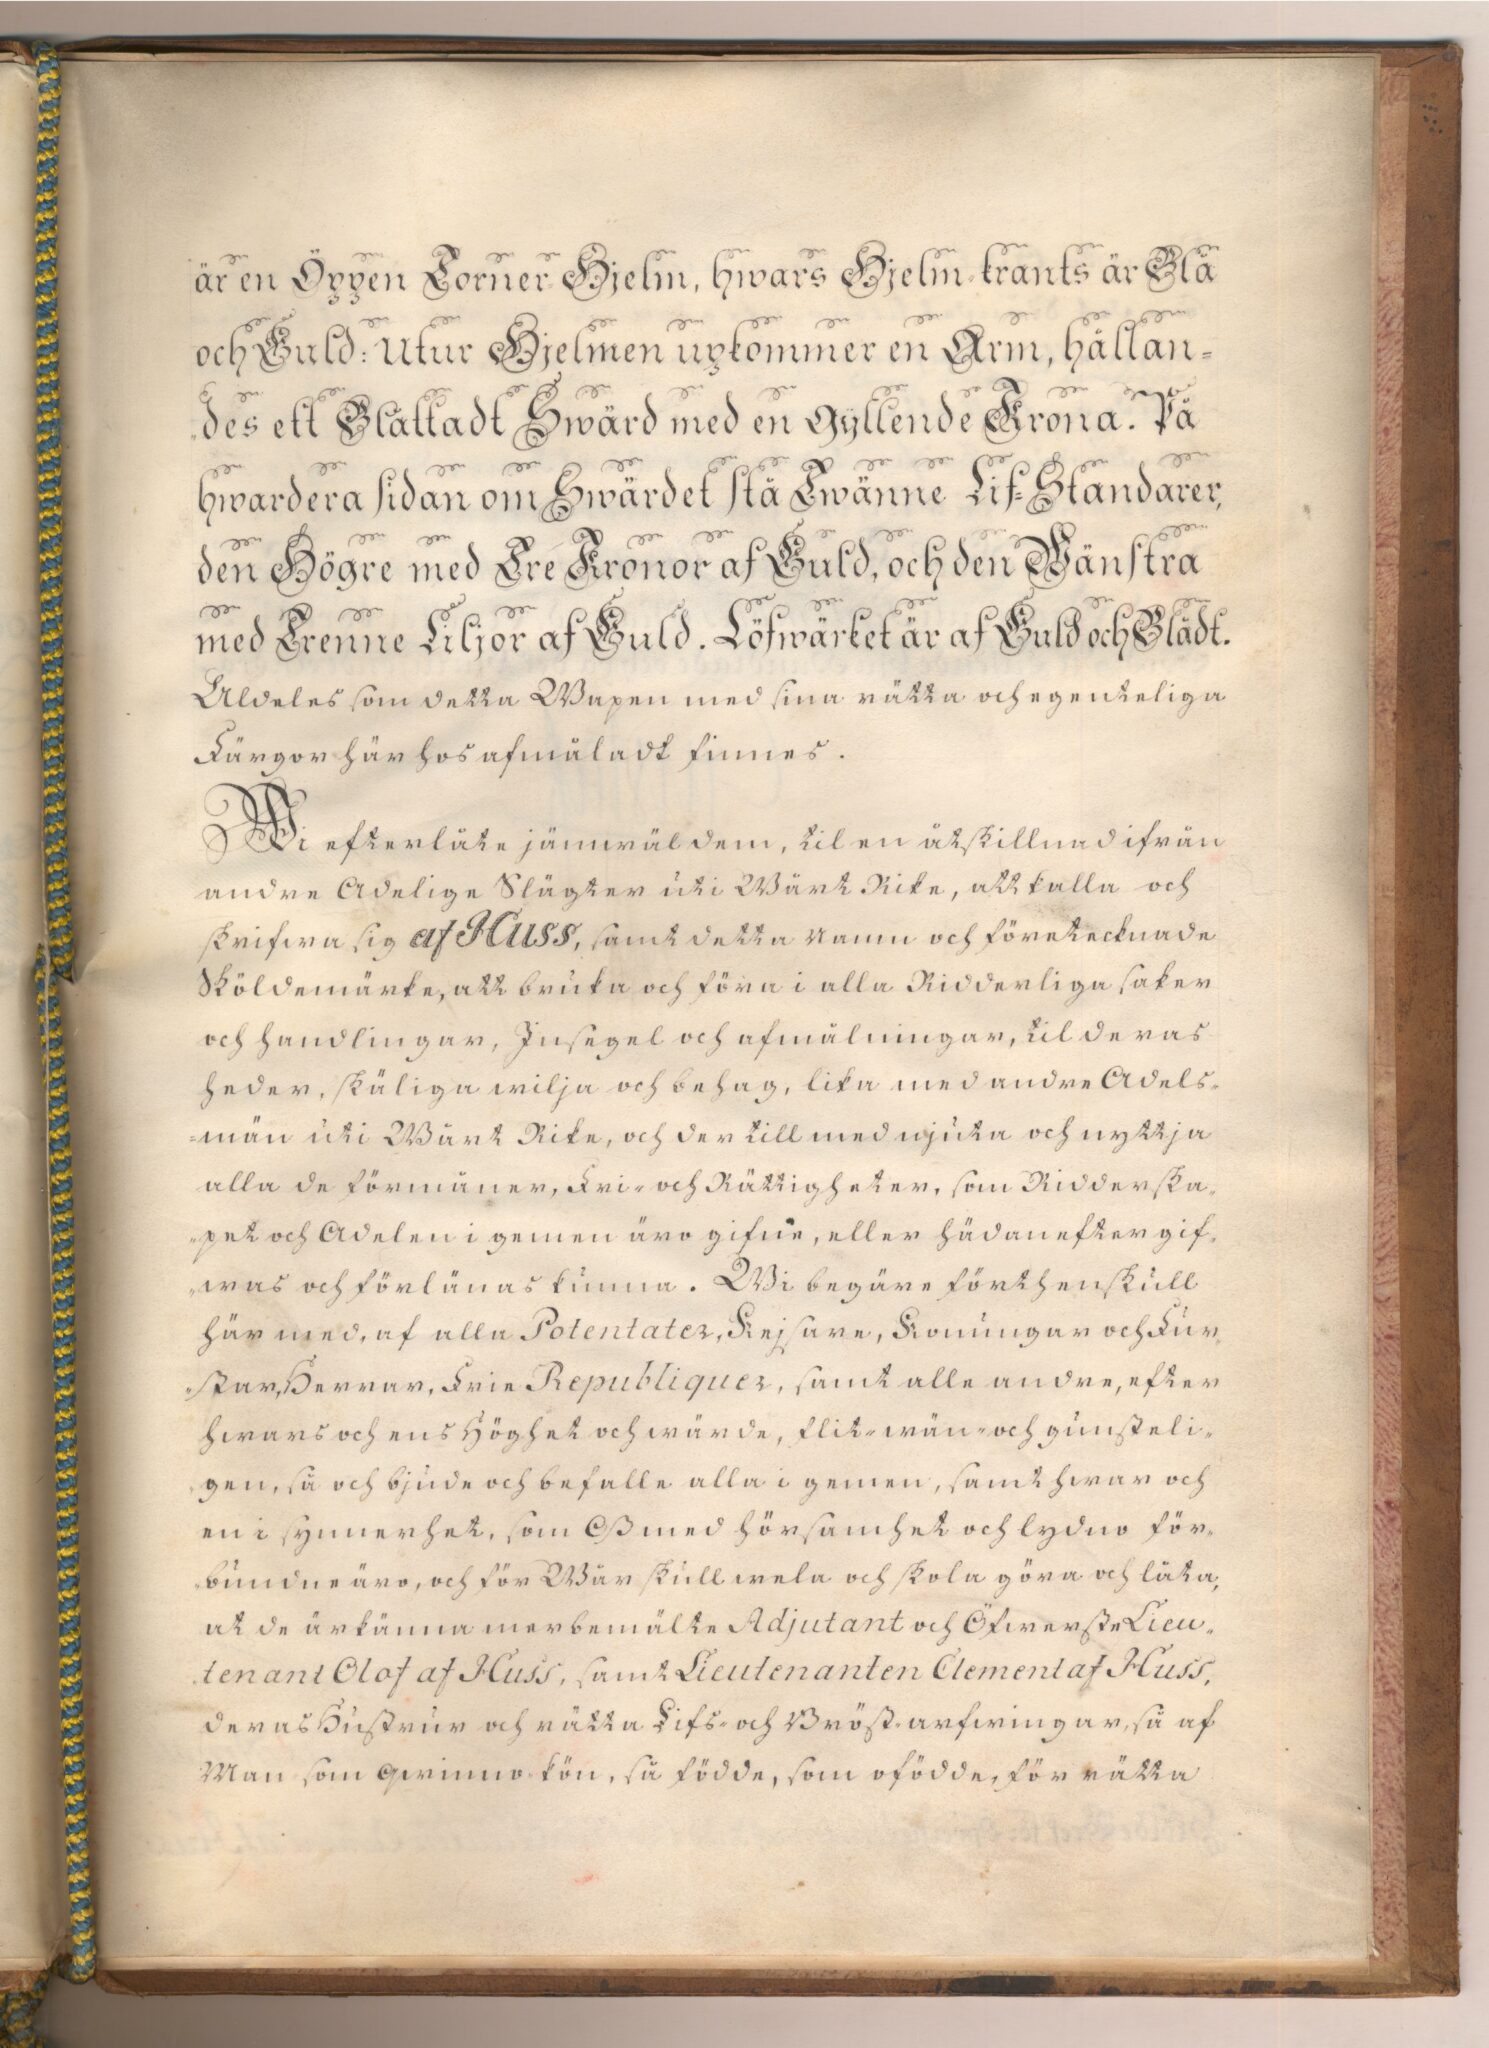 är en Öppen Torner-Hjelm, hwars Hjelm-krants är Blå
och Guld: Utur Hjelmen upkommer en Arm, hållan-
des ett Blåttadt Swärd med en Gyllende Krona. På
hwardera sidan om Swärdet stå Twänne Lif-Standarer,
den Högre med Tre Kronor af Guld, och den Wänstra
med Trenne Liljor af Guld. Löfwärket är af Guld och Blådt.
Aldeles som detta Wapen med sina rätta och egenteliga
Färgor här hos afmåladt finnes.
Wi efterlåte jämwäl dem, til en åtskillnad ifrån
andre Adelige Slägter uti Wårt Rike, att kalla och
skrifwa sig af Huss, samt detta namn och företecknade
Sköldemärke, att bruka och föra i alla Ridderliga saker
och handlingar, Insegel och afmålningar, til deras
heder, skäliga wilja och behag, lika med andre Adels-
män uti Wårt Rike, och der till med njuta och nyttja
alla de förmåner, Fri- och Rättigheter, som Ridderska-
pet och Adelen i gemen äro gifne, eller hädanefter gif-
was och förlänas kunna. Wi begäre förthenskull
här med, af alla Potentater, Kejsare, Konungar och Fur-
star, Herrar, Frie Republiquer, samt alle andre, efter
hwars och ens Höghet och wärde, flit- wän- och gunsteli-
gen, så och bjude och befalle alla i gemen, samt hwar och
en i synnerhet, som Oß med hörsamhet och lydno för-
bundne äro, och för Wår skull wela och skola göra och låta,
at de ärkänna merbemälte Adjutant och Öfwerste Lieu-
tenant Olof af Huss, samt Lieutenanten Clement af Huss,
deras Hustrur och rätta Lifs- och Bröst-arfwingar, så af
Man- som qwinno-kön, så födde, som ofödde, för rätta